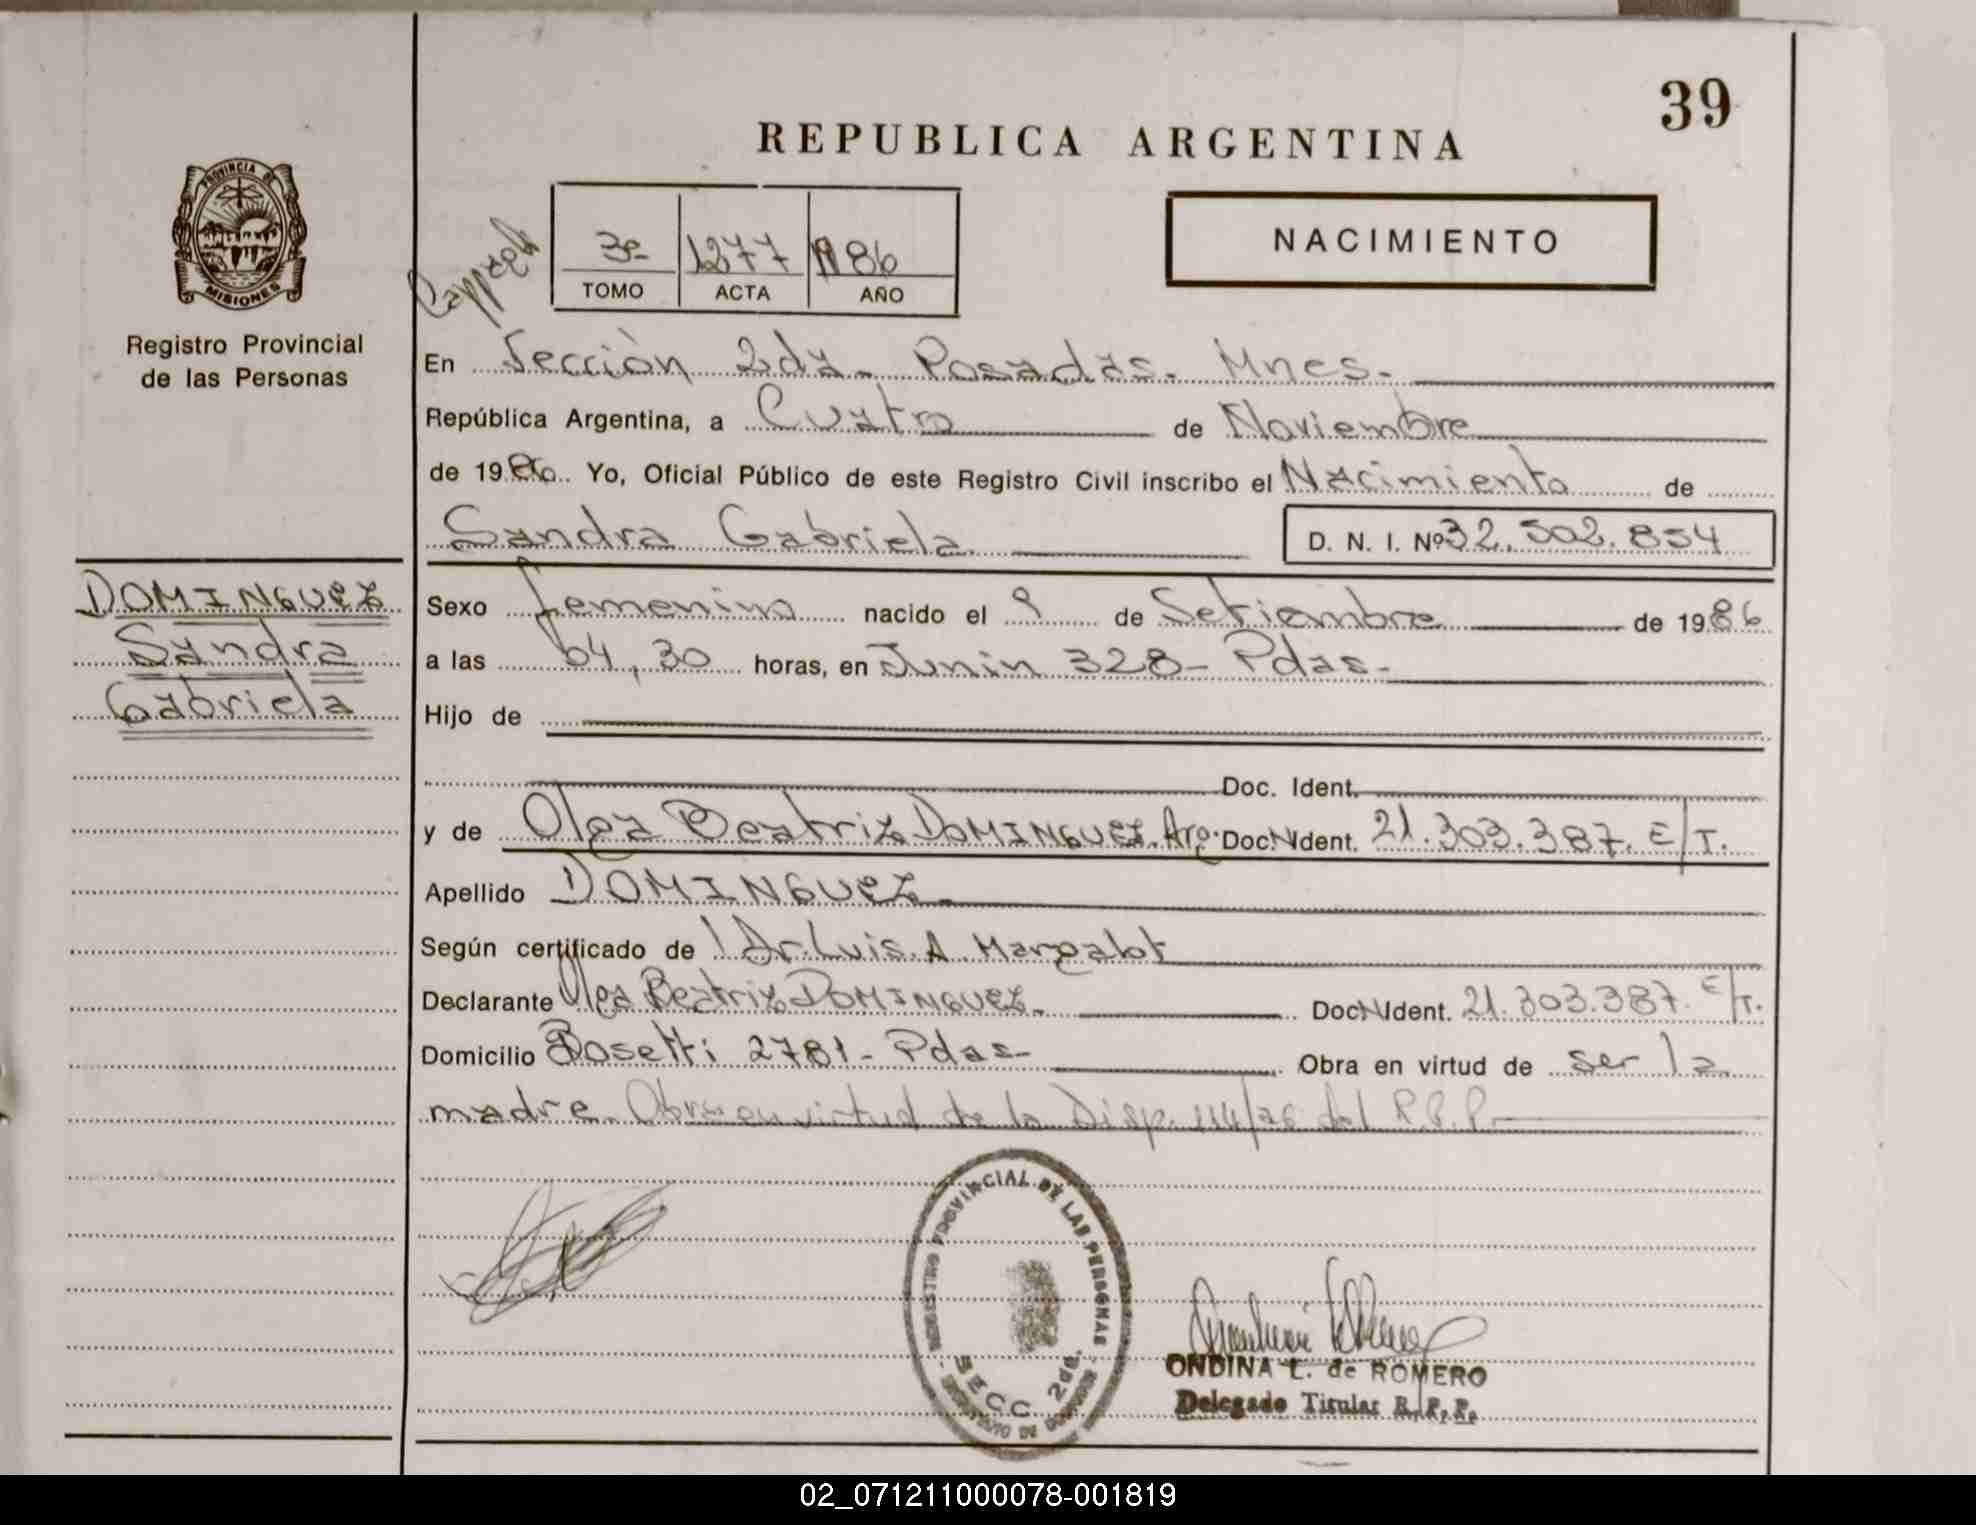 39
REPUBLICA ARGENTINA
PROVINCIA DE
MISIONES
Registro Provincial
de las Personas
NACIMIENTO
3º 1277 1986
TOMO ACTA AÑO
En Sección 2da. Posadas. Mnes.
República Argentina, a Cuatro de Noviembre
de 1986. Yo, Oficial Público de este Registro Civil inscribo el Nacimiento de
Sandra Gabriela D. N. I. Nº 32.502.854
DOMINGUEZ
Sandra
Gabriela
Sexo femenino nacido el 9 de Setiembre de 1986
a las 04,30 horas, en Junin 328- Pdas-
Hijo de
Doc. Ident.
y de Olga Beatriz DOMINGUEZ. Arg. Doc N Ident. 21.303.387. E/T.
Apellido DOMINGUEZ
Según certificado de Dr. Luis A. Margalot
Declarante Olga Beatriz DOMINGUEZ. Doc N Ident. 21.303.387. E/T.
Domicilio Rosetti 2781- Pdas- Obra en virtud de ser la
madre. Obra en virtud de la Disp. 114/76 del R.P.P.
REGISTRO PROVINCIAL DE LAS PERSONAS
SECC. 2da.
ONDINA L. de ROMERO
Delegado Titular R.P.P.
02_071211000078-001819